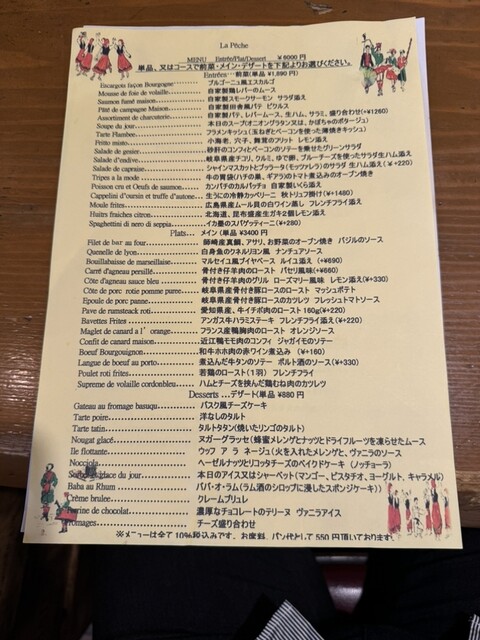 La Pêche
MENU Entrée/Plat/Dessert ￥6000円
単品、又はコースで前菜・メイン・デザートを下記よりお選びください。
Entrées…前菜(単品 ¥1,890円)
Escargots façon Bourgogne ブルゴーニュ風エスカルゴ
Mousse de foie de volaille 自家製鶏レバーのムース
Saumon fumé maison 自家製スモークサーモン サラダ添え
Pâté de campagne Maison 自家製田舎風パテ ピクルス
Assortiment de charcuterie 自家製パテ、レバームース、生ハム、サラミ、盛り合わせ(+¥1260)
Soupe du jour 本日のスープ(オニオングラタン又は、かぼちゃのポタージュ)
Tarte Flambee フラメンキッシュ(玉ねぎとベーコンを使った薄焼きキッシュ)
Fritto misto 小海老、穴子、舞茸のフリット レモン添え
Salade de gesier 砂肝のコンフィとベーコンのソテーを乗せたグリーンサラダ
Salade d'endive 岐阜県産チコリ、クルミ、ゆで卵、ブルーチーズを使ったサラダ生ハム添え
Salade de capraise シャインマスカットとブッラータ(モッツァレラ)のサラダ 生ハム添え (￥+220)
Tripes a la mode 牛の胃袋(ハチの巣、ギアラ)のトマト煮込みのオーブン焼き
Poisson cru et Oeufs de saumon カンパチのカルパッチョ 自家製いくら添え
Cappelini d'oursin et truffe d'autone 生うにの冷静カッペリーニ 秋トリュフ掛け(￥+1480)
Moule frites 広島県産ムール貝の白ワイン蒸し フレンチフライ添え
Huitrs fraiches citron 北海道、昆布盛産生ガキ2個レモン添え
Spaghettini di nero di seppia イカ墨のスパゲッティーニ(￥+280)
Plats… メイン (単品 ￥3400円
Filet de bar au four 師崎産真鯛、アサリ、お野菜のオーブン焼き バジルのソース
Quenelle de lyon 白身魚のクネルリヨン風 ナンチュアソース
Bouillabaisse de marseillaise マルセイユ風ブイヤベース ルイユ添え (+￥690)
Carré d'agneau persillé 骨付き仔羊肉のロースト パセリ風味(+￥660)
Côte d'agneau sauce bleu 骨付き仔羊肉のグリル ローズマリー風味 レモン添え(￥+330)
Côte de porc rotie pomme puree 岐阜県産骨付き豚ロースのロースト マッシュポテト
Epoule de porc panne 岐阜県産骨付き豚ロースのカツレツ フレッシュトマトソース
Pave de rumsteack roti 愛知県産、牛イチボ肉のロースト 160g(￥+220)
Bavettes Frites アンガス牛ハラミステーキ フレンチフライ添え(￥+220)
Maglet de canard a l'orange フランス産鴨胸肉のロースト オレンジソース
Confit de canard maison 近江鴨モモ肉のコンフィ ジャガイモのソテー
Bœuf Bourguignon 和牛ホホ肉の赤ワイン煮込み (￥+160)
Langue de boeuf au porto 煮込んだ牛タンのソテー ポルト酒のソース(￥+330)
Poulet roti frites 若鶏のロースト(1羽) フレンチフライ
Supreme de volaille cordonbleu ハムとチーズを挟んだ鶏むね肉のカツレツ
Desserts …デザート(単品 ¥880円
Gateau au fromage basuqu バスク風チーズケーキ
Tarte poire 洋なしのタルト
Tarte tatin タルトタタン(焼いたリンゴのタルト)
Nougat glacé ヌガーグラッセ(蜂蜜メレンゲとナッツとドライフルーツを凍らせたムース
Ile flottante ウッフ ア ラ ネージュ(火を入れたメレンゲと、ヴァニラのソース
Nocciola ヘーゼルナッツとリコッタチーズのベイクドケーキ (ノッチョーラ)
glace du jour 本日のアイス又はシャーベット(マンゴー、ピスタチオ、ヨーグルト、キャラメル)
Baba au Rhum ババ・オ・ラム(ラム酒のシロップに浸したスポンジケーキ))
Crème brulee クレームブリュレ
Terrine de chocolat 濃厚なチョコレートのテリーヌ ヴァニラアイス
Fromages チーズ盛り合わせ
※メニューは全て10%税込みです。お席料、パン代として550円頂いております。